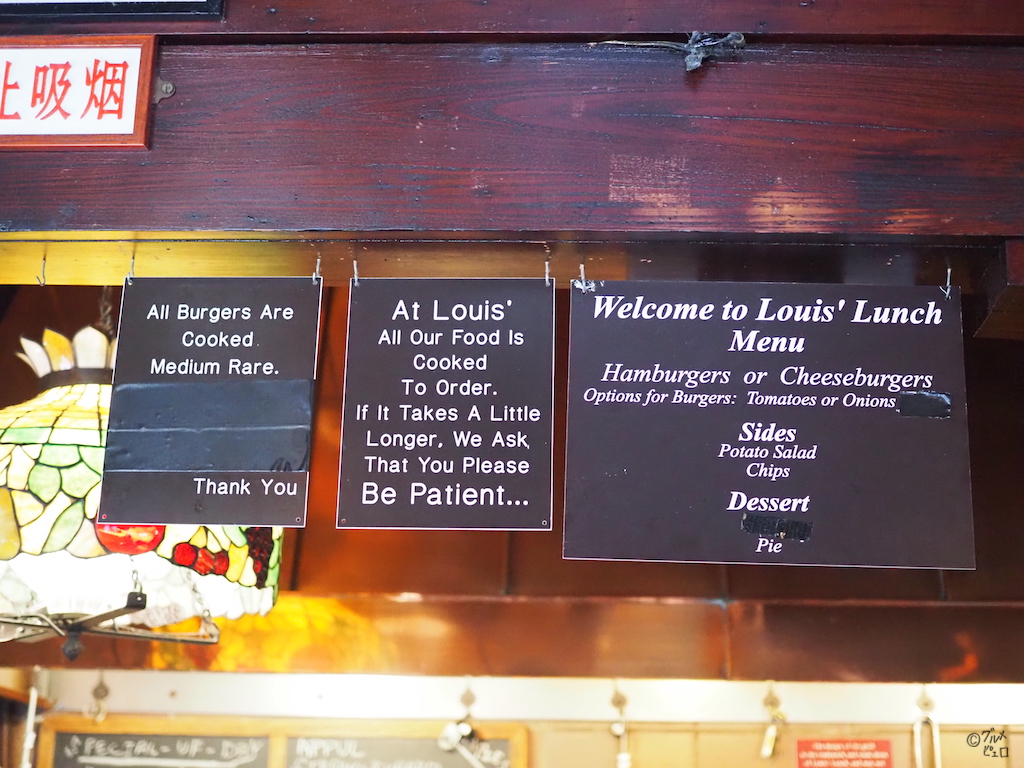 止吸烟
All Burgers Are
Cooked
Medium Rare.
Thank You
At Louis'
All Our Food Is
Cooked
To Order.
If It Takes A Little
Longer, We Ask
That You Please
Be Patient...
Welcome to Louis' Lunch
Menu
Hamburgers or Cheeseburgers
Options for Burgers: Tomatoes or Onions
Sides
Potato Salad
Chips
Dessert
Pie
©グルメ
ピエロ